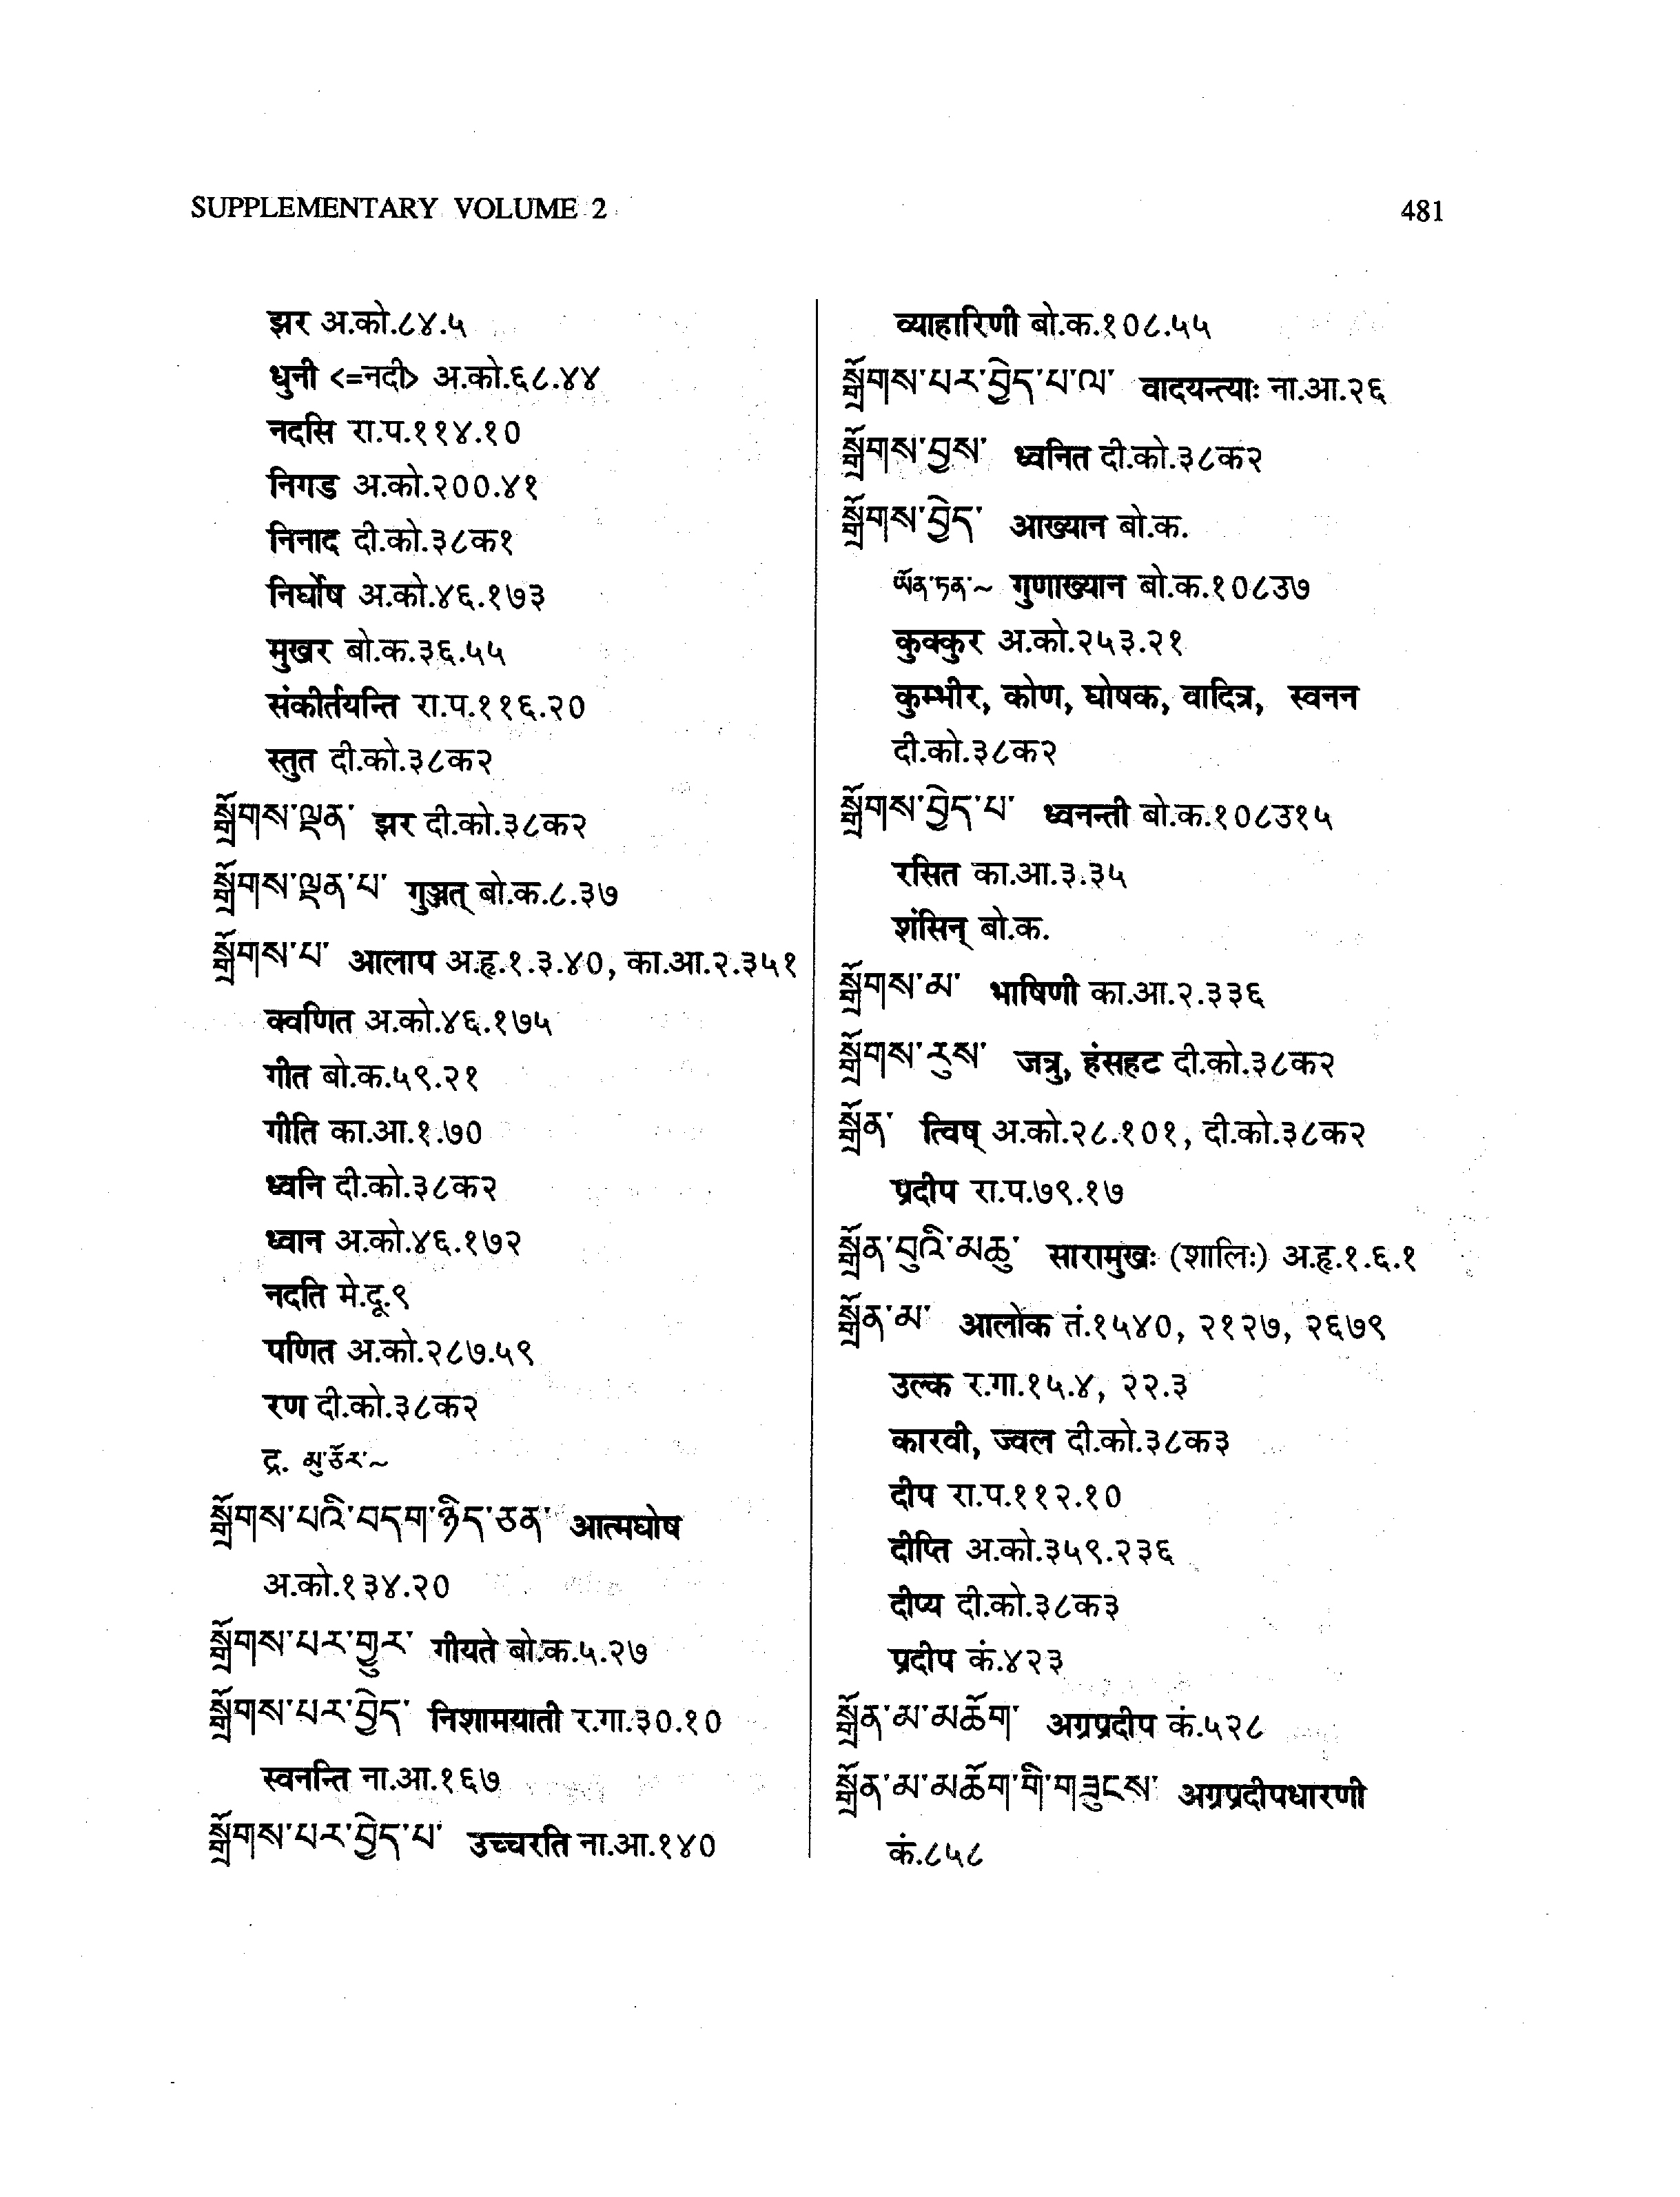 SUPPLEMENTARY VOLUME 2
481
झर अ.को.८४.५
धुनी <=नदी> अ.को.६८.४४
नदसि रा.प.११४.१०
निगड अ.को.२००.४१
निनाद दी.को.३८क१
निर्घोष अ.को.४६.१७३
मुखर बो.क.३६.५५
संकीर्तयन्ति रा.प.११६.२०
स्तुत दी.को.३८क२
སྒྲོགས་ལྡན་ झर दी.को.३८क२
སྒྲོགས་ལྡན་པ་ गुञ्जत् बो.क.८.३७
སྒྲོགས་པ་ आलाप अ.हृ.१.३.४०, का.आ.२.३५१
क्वणित अ.को.४६.१७५
गीत बो.क.५९.२१
गीति का.आ.१.७०
ध्वनि दी.को.३८क२
ध्वान अ.को.४६.१७२
नदति मे.दू.९
पणित अ.को.२८७.५९
रण दी.को.३८क२
द्र. མུ་ཅོར་~
སྒྲོགས་པའི་བདག་ཉིད་ཅན་ आत्मघोष
अ.को.१३४.२०
སྒྲོགས་པར་གྱུར་ गीयते बो.क.५.२७
སྒྲོགས་པར་བྱེད་ निशामयाती र.गा.३०.१०
स्वनन्ति ना.आ.१६७
སྒྲོགས་པར་བྱེད་པ་ उच्चरति ना.आ.१४०
व्याहारिणी बो.क.१०८.५५
སྒྲོགས་པར་བྱེད་པ་ལ་ वादयन्त्याः ना.आ.२६
སྒྲོགས་བྱས་ ध्वनित दी.को.३८क२
སྒྲོགས་བྱེད་ आख्यान बो.क.
ཡོན་ཏན་~ गुणाख्यान बो.क.१०८उ७
कुक्कुर अ.को.२५३.२१
कुम्भीर, कोण, घोषक, वादित्र, स्वनन
दी.को.३८क२
སྒྲོགས་བྱེད་པ་ ध्वनन्ती बो.क.१०८उ१५
रसित का.आ.३.३५
शंसिन् बो.क.
སྒྲོགས་མ་ भाषिणी का.आ.२.३३६
སྒྲོགས་རུས་ जत्रु, हंसहट दी.को.३८क२
སྒྲོན་ त्विष् अ.को.२८.१०१, दी.को.३८क२
प्रदीप रा.प.७९.१७
སྒྲོན་བུའི་མཆུ་ सारामुखः (शालिः) अ.हृ.१.६.१
སྒྲོན་མ་ आलोक तं.१५४०, २१२७, २६७९
उल्क र.गा.१५.४, २२.३
कारवी, ज्वल दी.को.३८क३
दीप रा.प.११२.१०
दीप्ति अ.को.३५९.२३६
दीप्य दी.को.३८क३
प्रदीप कं.४२३
སྒྲོན་མ་མཆོག་ अग्रप्रदीप कं.५२८
སྒྲོན་མ་མཆོག་གི་གཟུངས་ अग्रप्रदीपधारणी
कं.८५८